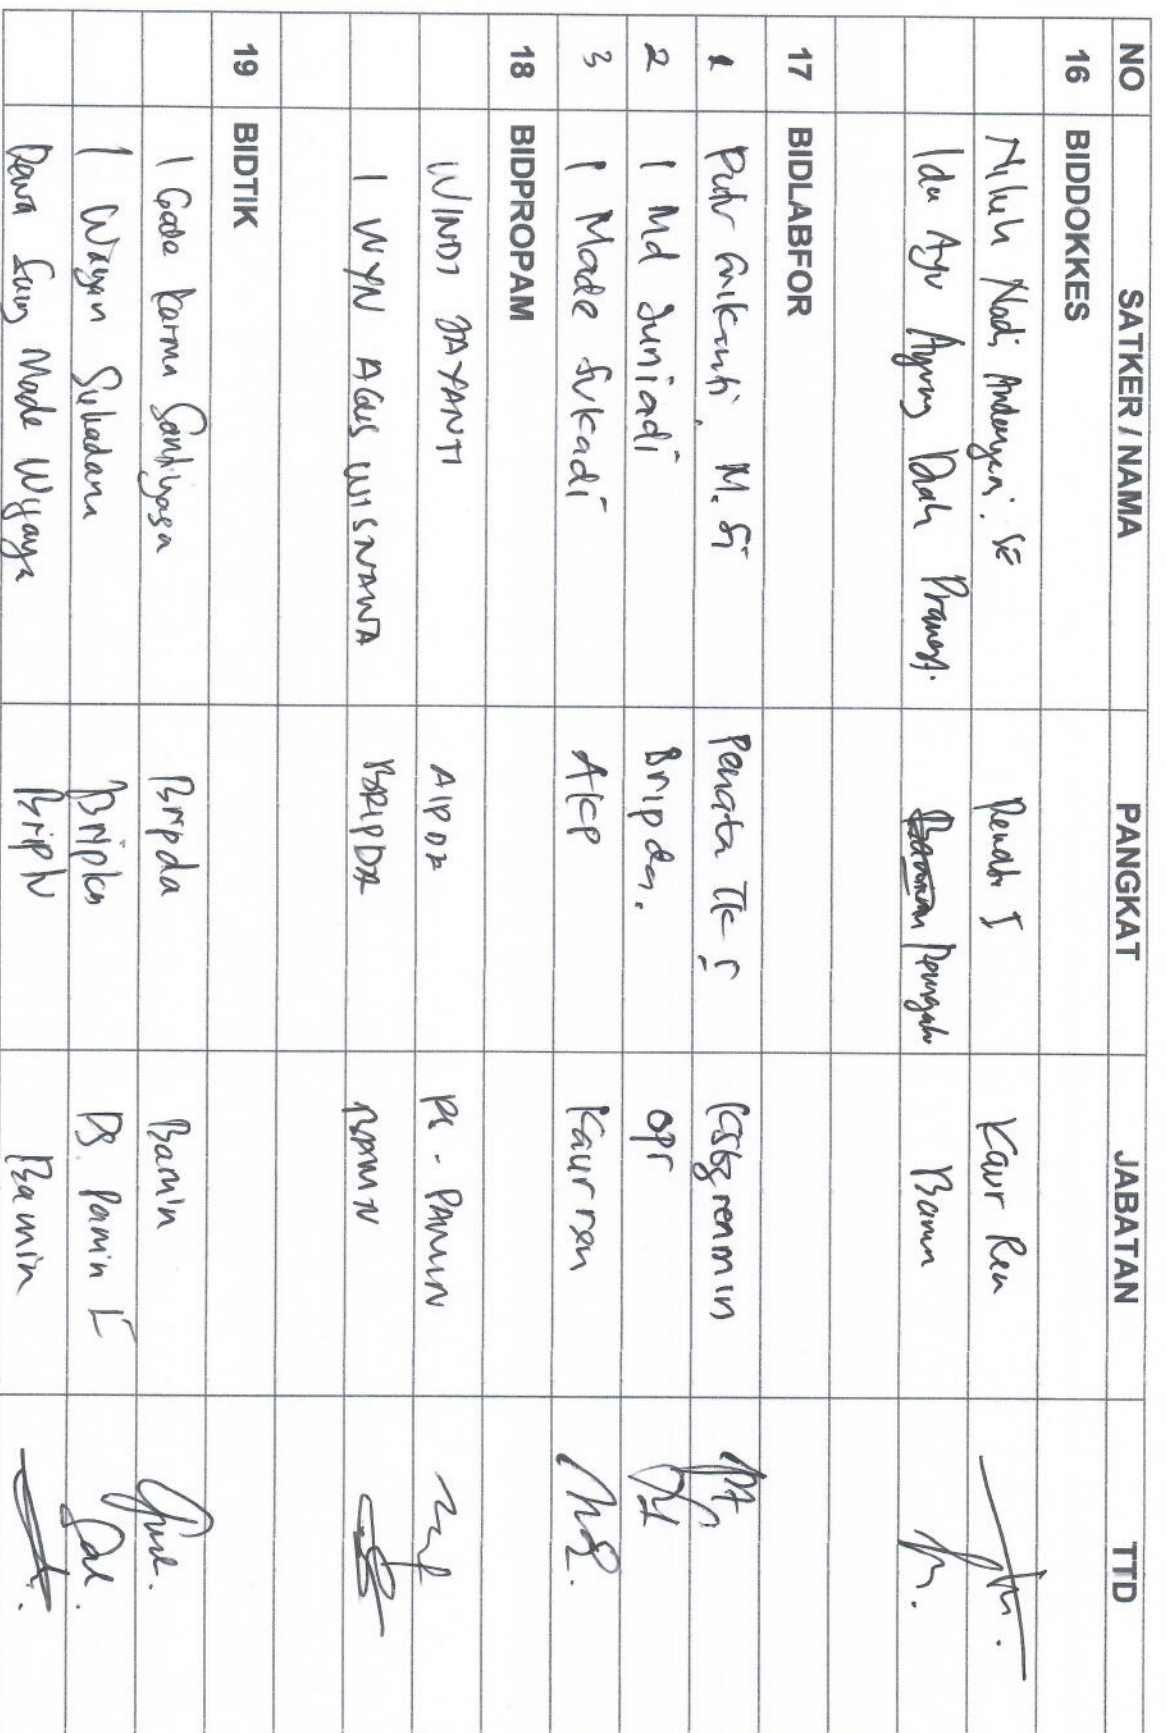 NO SATKER / NAMA PANGKAT JABATAN TTD
16 BIDDOKKES
Niluh Nadi SE Penata I Kaur Ren
Ida Ayu Agung Diah Bamin
17 BIDLABFOR
1 Putu M. Si Penata Tk I
2 I Md Juniadi Bripda. opr
3 I Made Sukadi AKP Kaur ren
18 BIDPROPAM
WINDI JAYANTI AIPDA PS - PAMIN
I WYN AGUS WISNAWA BRIPDA BAMIN
19 BIDTIK
I Gede Karma Santiyasa Bripda Bamin
I Wayan Sukadana Bripka PS. Pamin
Dewa Made Wijaya Bamin